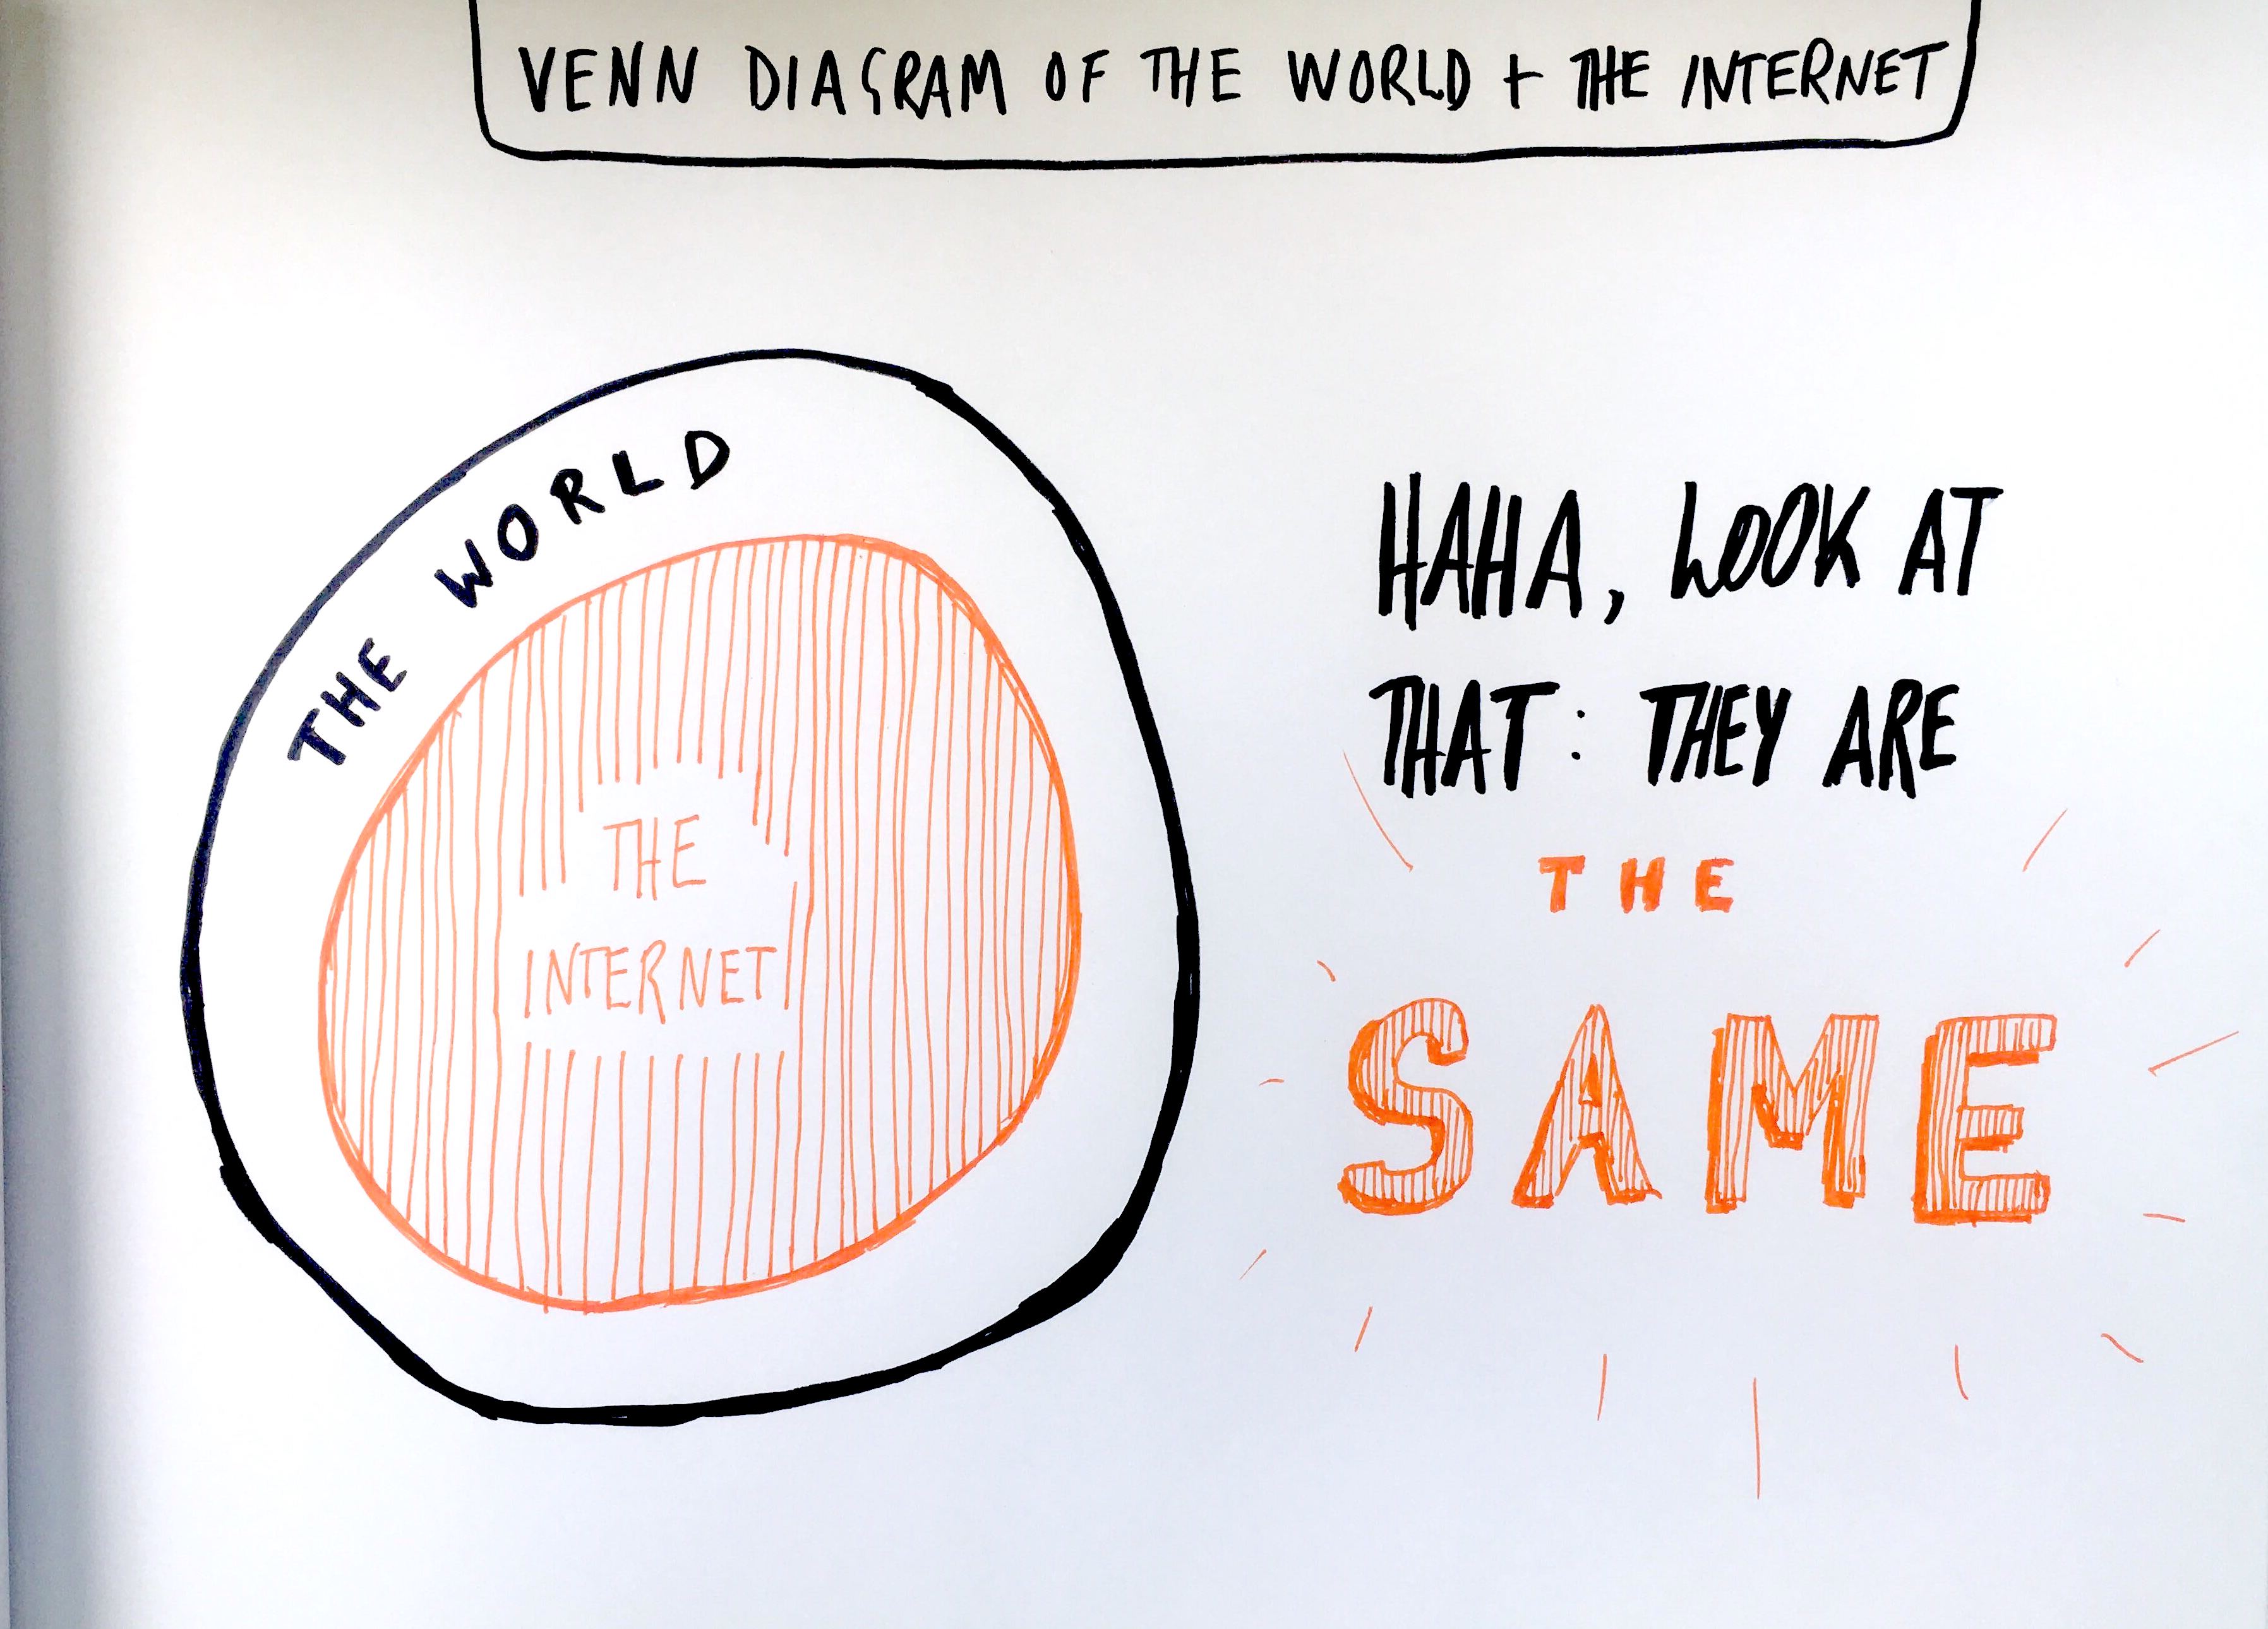 VENN DIAGRAM OF THE WORLD + THE INTERNET
THE WORLD
THE
INTERNET
HAHA, LOOK AT
THAT: THEY ARE
THE
SAME